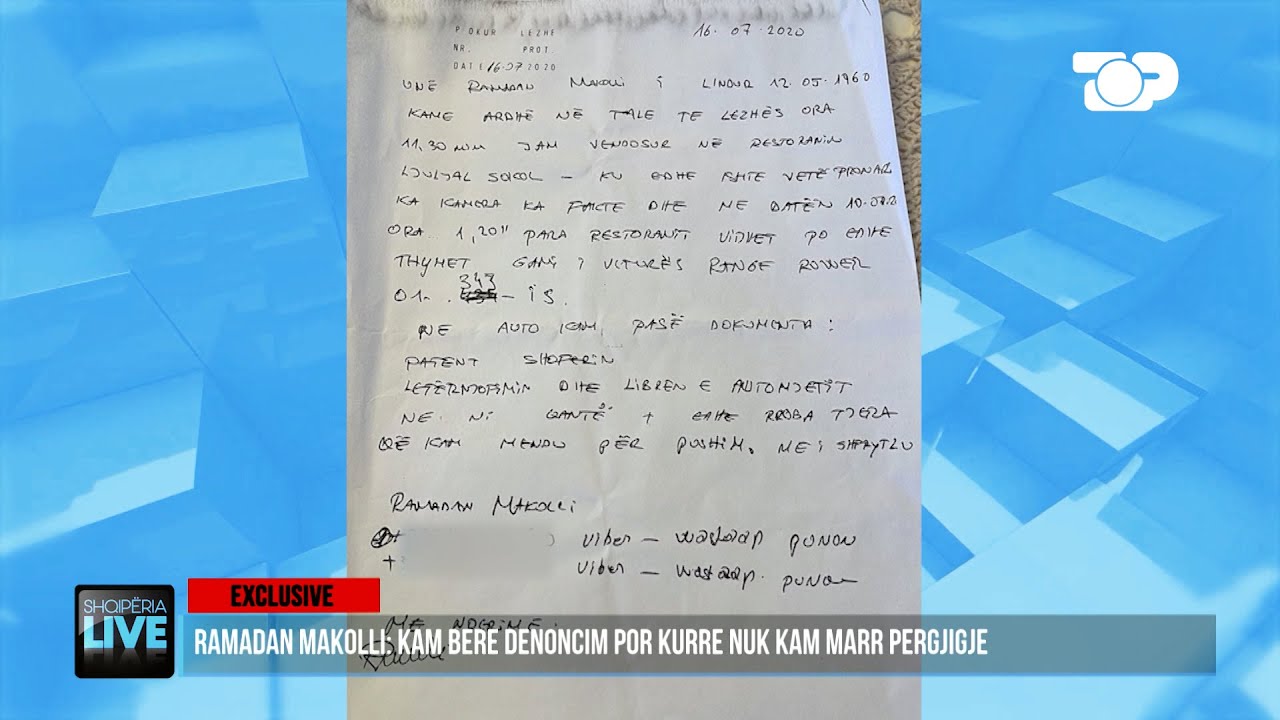 PROKUR LEZHE
16.07.2020
NR. PROT.
DATE 16.07 2020
TOP
UNË RAMADAN MAKOLLI I LINDUR 12.05.1960
KAME ARDHË NË TALE TE LEZHËS ORA
11,30 min JAM VENDOSUR NË RESTORANIN
SOKOL – KU EDHE ESHTE VETË PRONAR
KA KAMERA KA FAKTE DHE NE DATËN
ORA 1,20" PARA RESTORANTT VIDHET PO EDHE
THYHET GAMI I VETURËS RANGE ROWER
01 343 - IS.
NE AUTO KAM PASË DOKUMENTA:
PATENT SHOFERIN
LETËRNJOFTIMIN DHE LIBREN E AUTOMJETIT
NE NI QANTË + EDHE RROBA TJERA
QË KAM MENDU PËR PUSHIM. ME I SHFRYTZU
RAMADAN MAKOLLI
viber – watsaap punon
+ viber – watsaap. punon
ME NDERIME:
SHQIPËRIA
LIVE
EXCLUSIVE
RAMADAN MAKOLLI, KAM BERE DENONCIM POR KURRE NUK KAM MARR PERGJIGJE